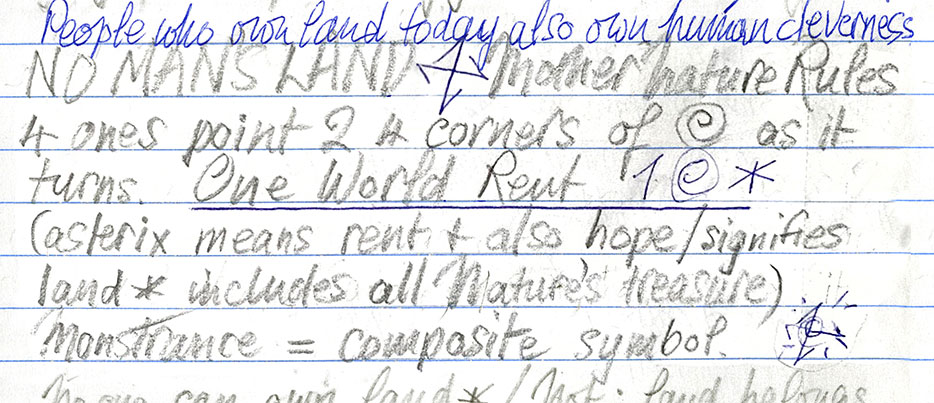 People who own land today also own human cleverness
NO MANS LAND Mother nature Rules
4 ones point 2 4 corners of @ as it
turns. One World Rent 1 @ *
(asterix means rent + also hope/signifies
land * includes all Nature's treasure)
Monstrance = composite symbol.
No one can own land * / Not : land belongs